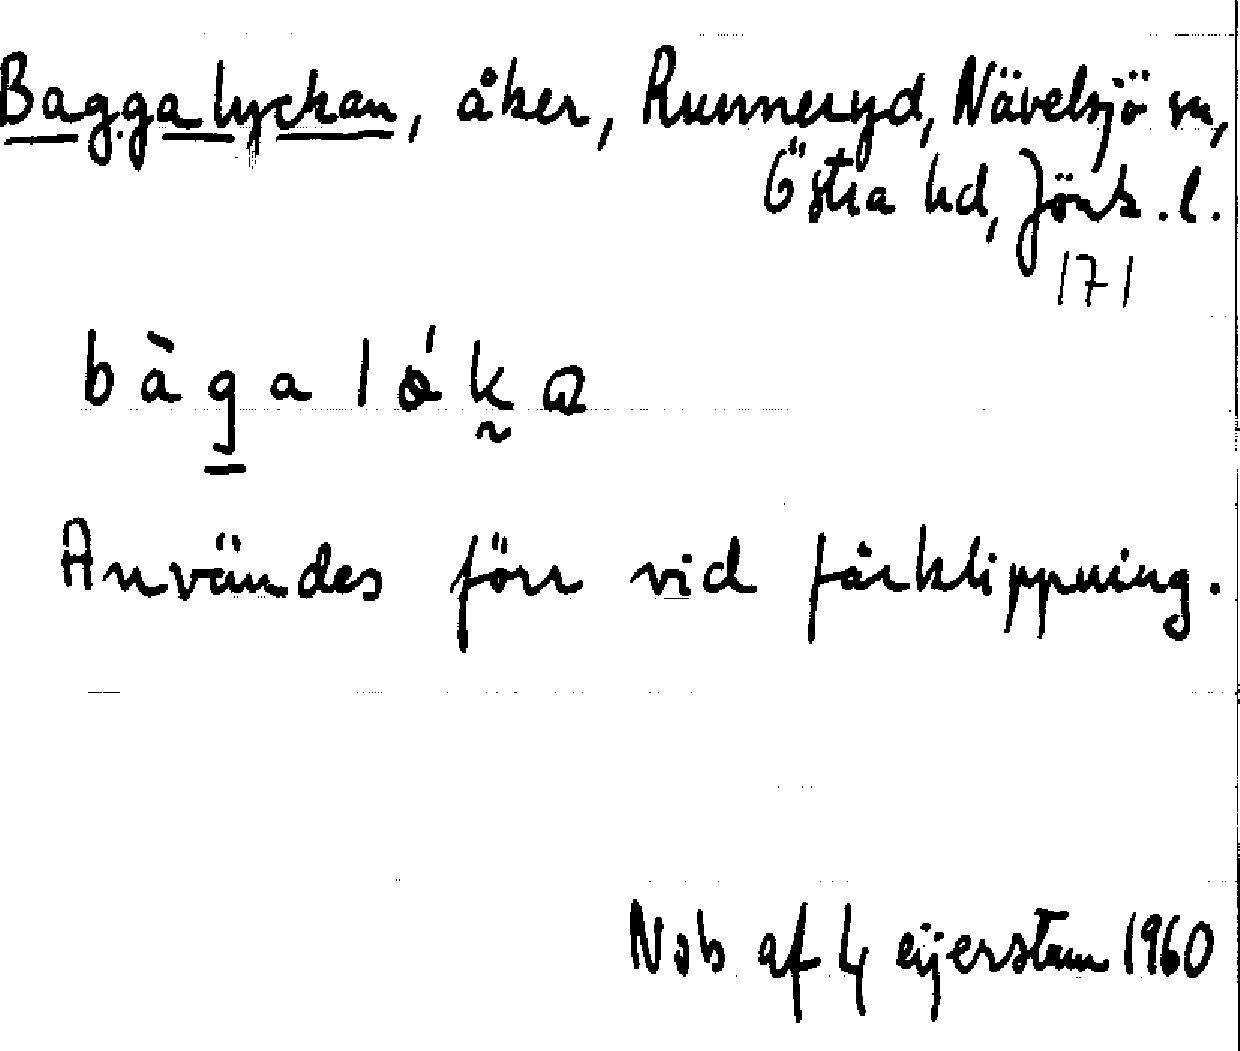 Baggalyckan, åker, Runneryd, Nävelsjö sn,
Östra hd, Jönk. l.
171
bàgalǿka
Användes förr vid fårklippning.
af 1960